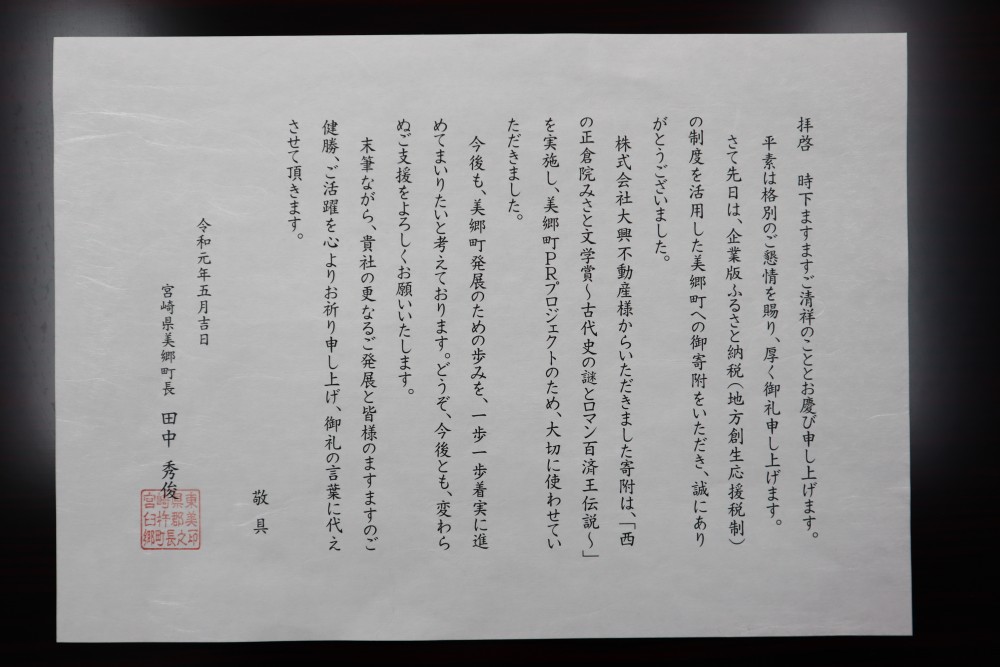 拝啓　時下ますますご清祥のこととお慶び申し上げます。
平素は格別のご懇情を賜り、厚く御礼申し上げます。
さて先日は、企業版ふるさと納税（地方創生応援税制）
の制度を活用した美郷町への御寄附をいただき、誠にあり
がとうございました。
株式会社大興不動産様からいただきました寄附は、「西
の正倉院みさと文学賞～古代史の謎とロマン百済王伝説～」
を実施し、美郷町PRプロジェクトのため、大切に使わせてい
ただきました。
今後も、美郷町発展のための歩みを、一歩一歩着実に進
めてまいりたいと考えております。どうぞ、今後とも、変わら
ぬご支援をよろしくお願いいたします。
末筆ながら、貴社の更なるご発展と皆様のますますのご
健勝、ご活躍を心よりお祈り申し上げ、御礼の言葉に代え
させて頂きます。
敬具
令和元年五月吉日
宮崎県美郷町長　田中　秀俊
東美印
県郡之
崎杵町長
宮臼郷